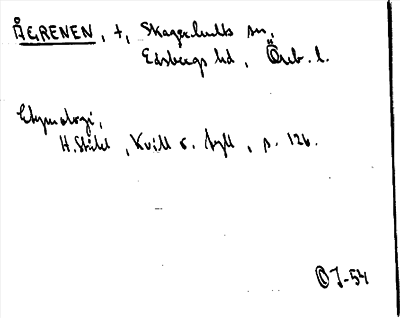 ÅGRENEN, t, Skagershults sn,
Edsbergs hd, Öreb. l.
Etymologi,
H. Ståhl, Kvill o. tyll, s. 126.
OJ-54